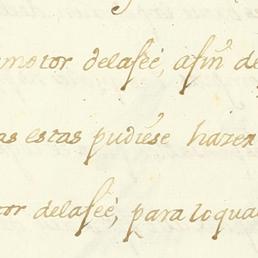 motor delafeé, afin de
as estas pudiese hazer
tor delafeé, para loqua